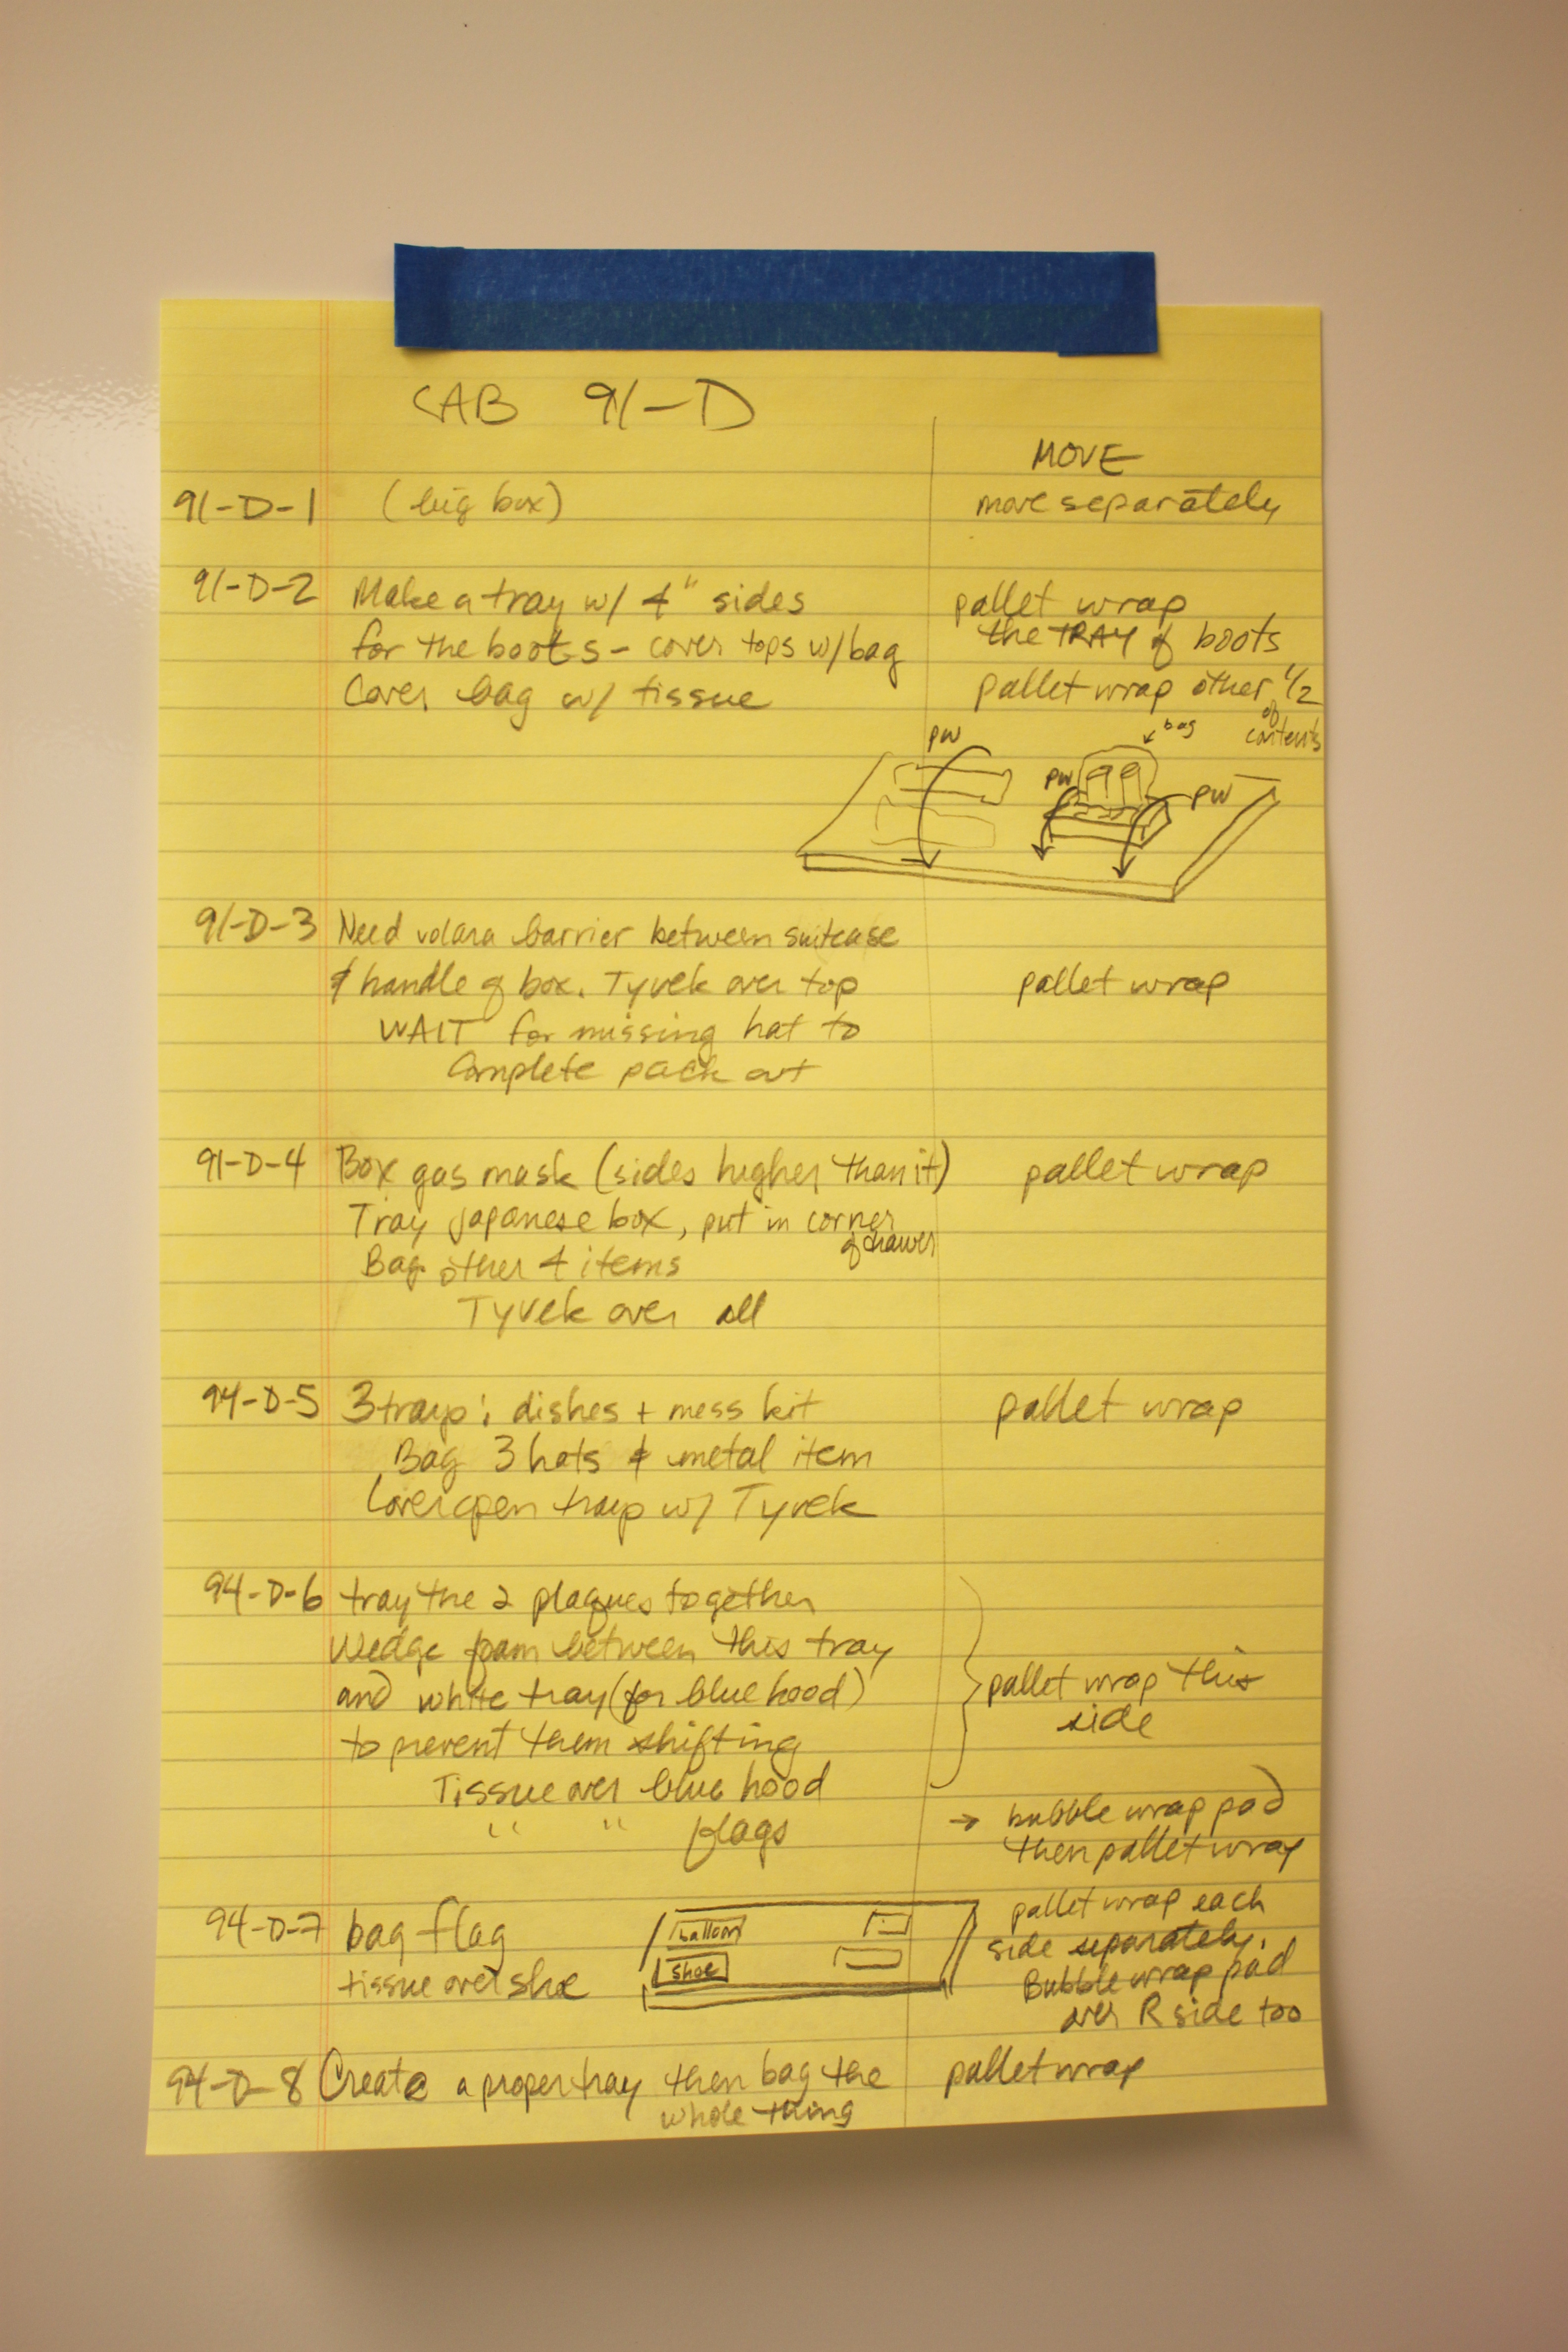 CAB 91-D
MOVE
91-D-1 (big box) move separately
91-D-2 Make a tray w/ 4" sides pallet wrap
for the boots - cover tops w/bag the TRAY of boots
Cover bag w/ tissue pallet wrap other 1/2
of contents
pw bag
pw pw
91-D-3 Need volara barrier between suitcase
& handle of box. Tyvek over top pallet wrap
WAIT for missing hat to
Complete pack out
91-D-4 Box gas mask (sides higher than it) pallet wrap
Tray japanese box, put in corner
of drawer
Bag other 4 items
Tyvek over all
94-D-5 3 trays: dishes + mess kit pallet wrap
Bag 3 hats & metal item
Cover open trays w/ Tyvek
94-D-6 tray the 2 plaques together
Wedge foam between this tray
and white tray (for blue hood) pallet wrap this
to prevent them shifting side
Tissue over blue hood
" " flags → bubble wrap pad
then pallet wrap
94-D-7 bag flag balloon pallet wrap each
tissue over shoe shoe side separately.
Bubble wrap pad
over R side too
94-D-8 Create a proper tray then bag the pallet wrap
whole thing